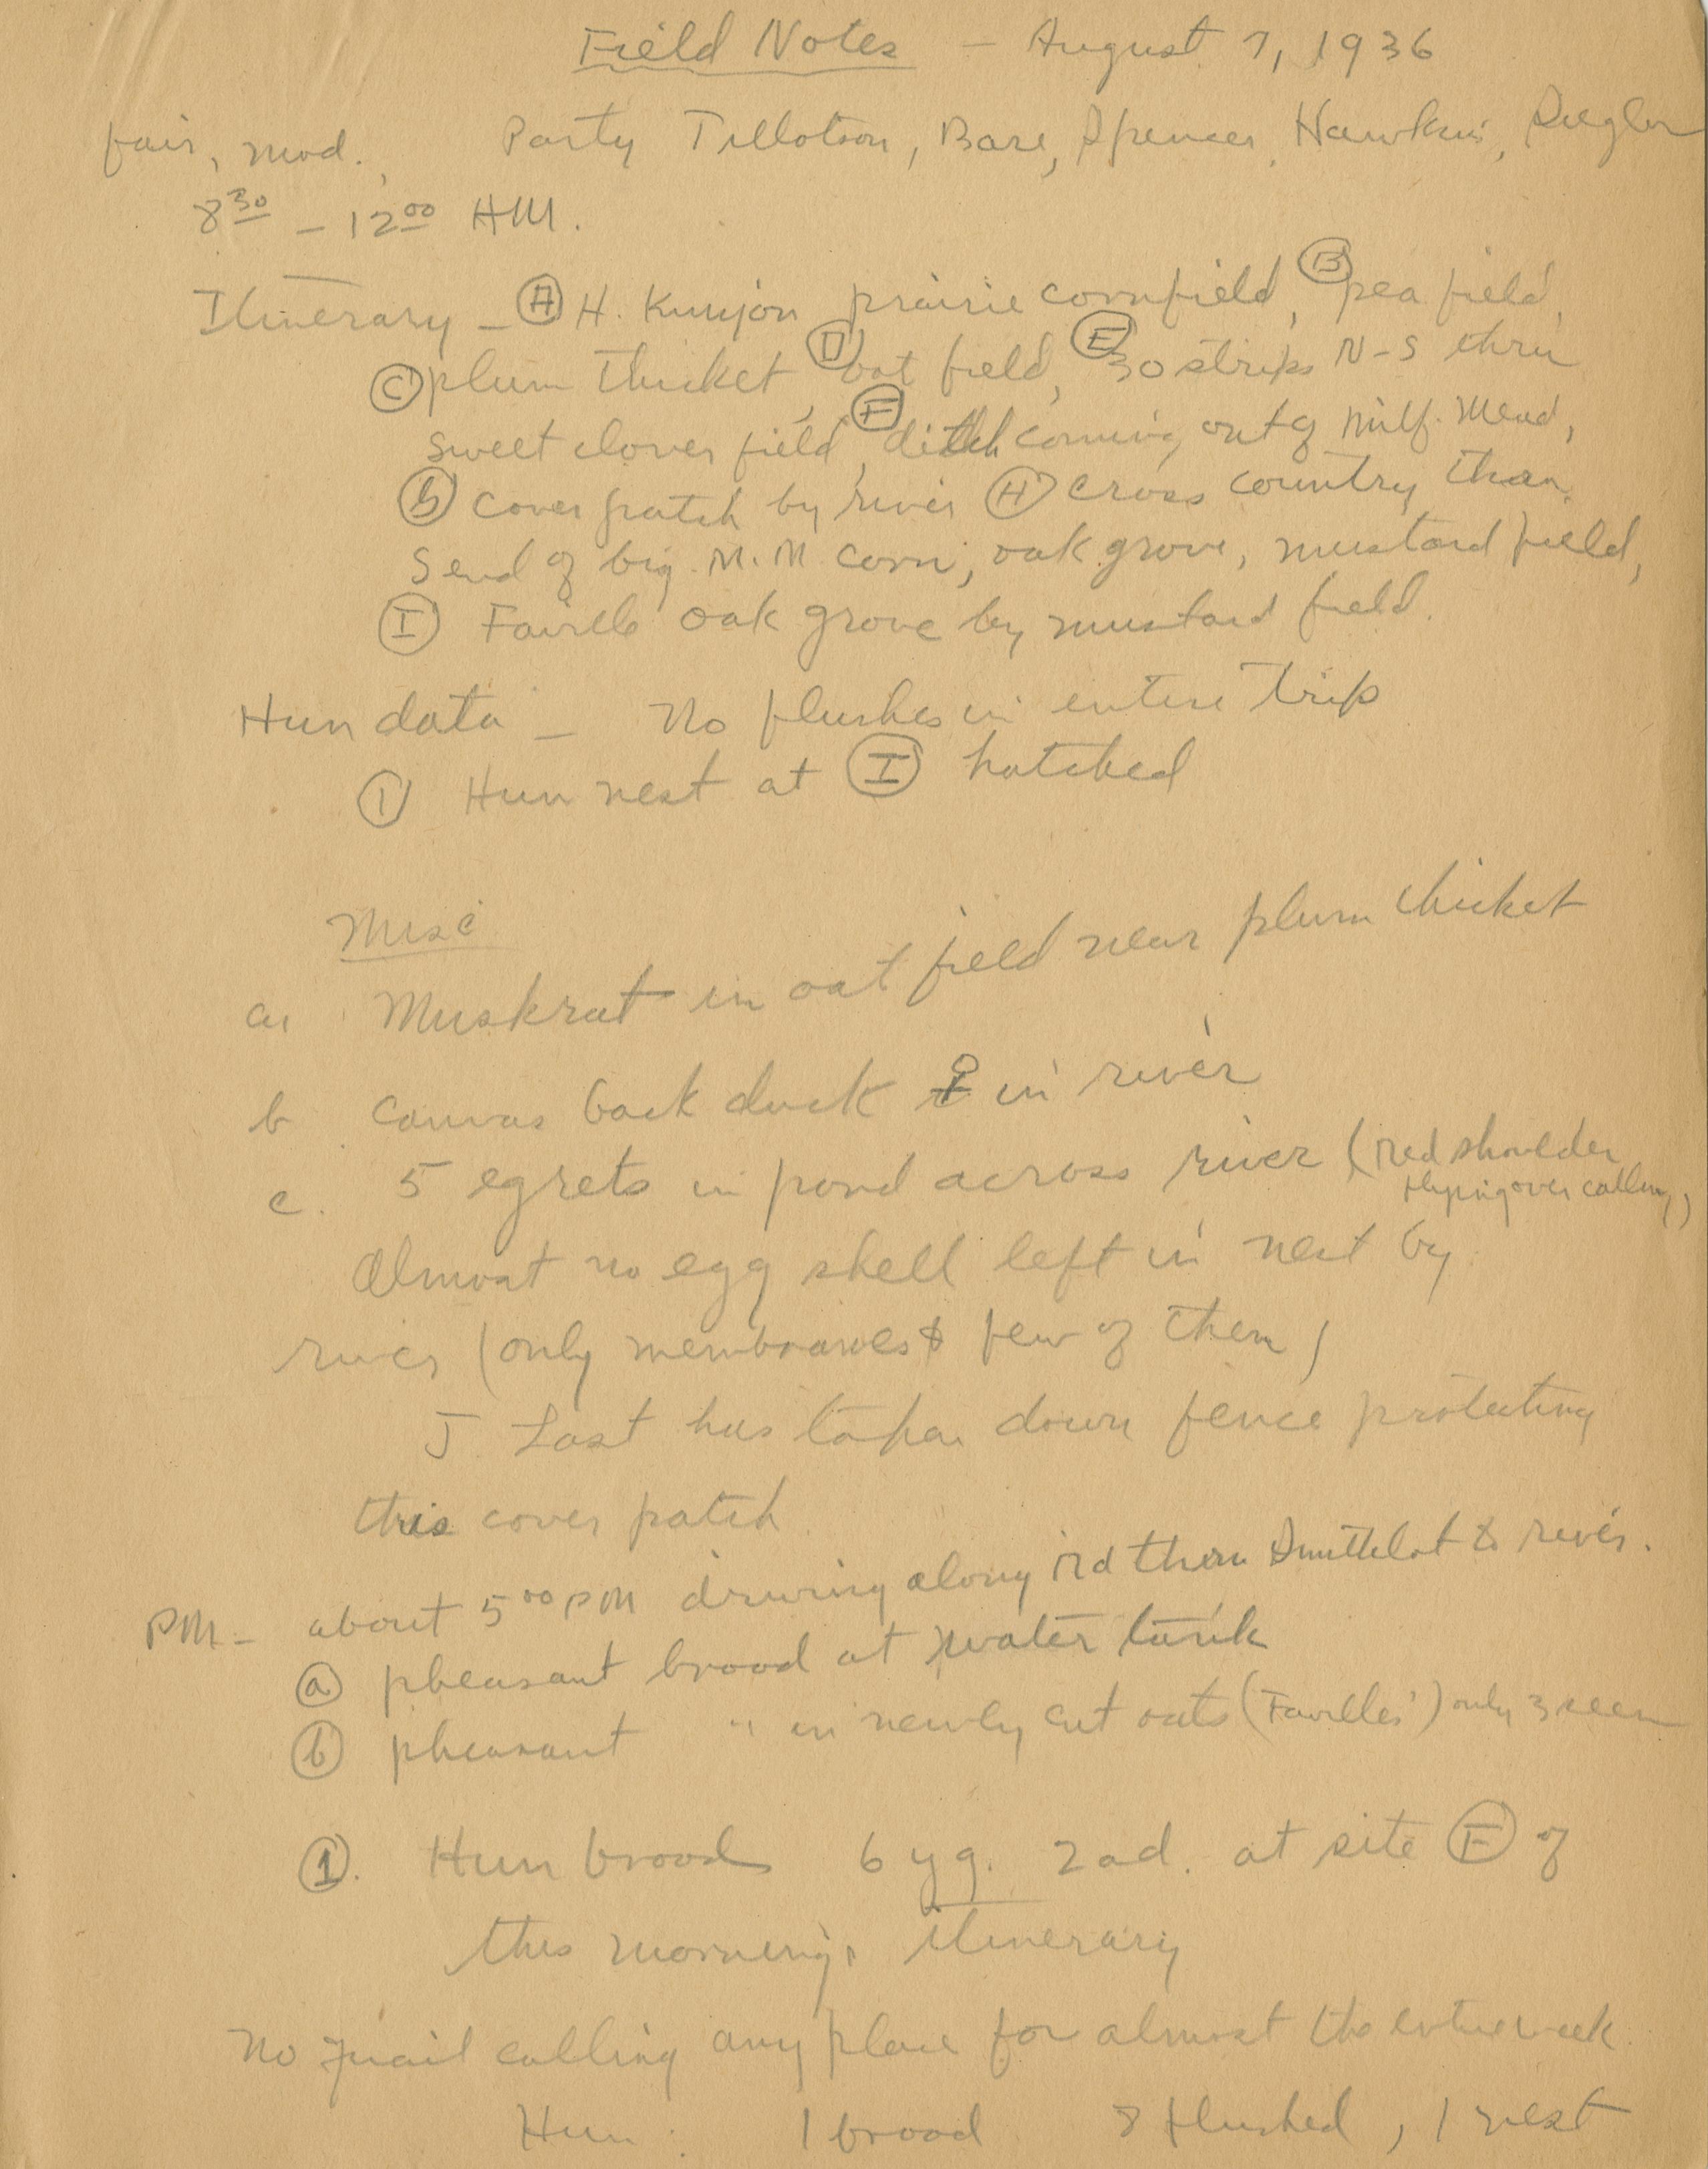 Field Notes - August 7, 1936
fair, mod. Party Tillotson, Bare, Spencer, Hawkins,
8 30 - 12 00 AM.
Itinerary - (A) H. prairie cornfield, (B) pea field,
(C) plum thicket, (D) oat field, (E) 30 strips N-S thru
sweet clover field, (F) ditch coming out of Milf. Mead,
(G) cover patch by river (H) cross country thru
S end of big M.M corn, oak grove, mustard field,
(I) Faville oak grove by mustard field.
Hun data - No flushes in entire trip
(1) Hun nest at (I) hatched
Misc
a. Muskrat in oat field near plum thicket
b canvas back duck ♀ in river
c. 5 egrets in pond across river (red shoulder
flying over calling)
Almost no egg shell left in nest by
river (only membranes & few of them)
J. Last has taken down fence protecting
this cover patch
PM - about 5 00 PM driving along rd thru to river.
(a) pheasant brood at water tank
(b) pheasant " in newly cut oats (Favilles') only 3 seen
(1). Hun brood 6 yg. 2 ad. at site (F) of
this mornings itinerary
No quail calling any place for almost the entire week.
Hun: 1 brood 8 flushed, 1 nest